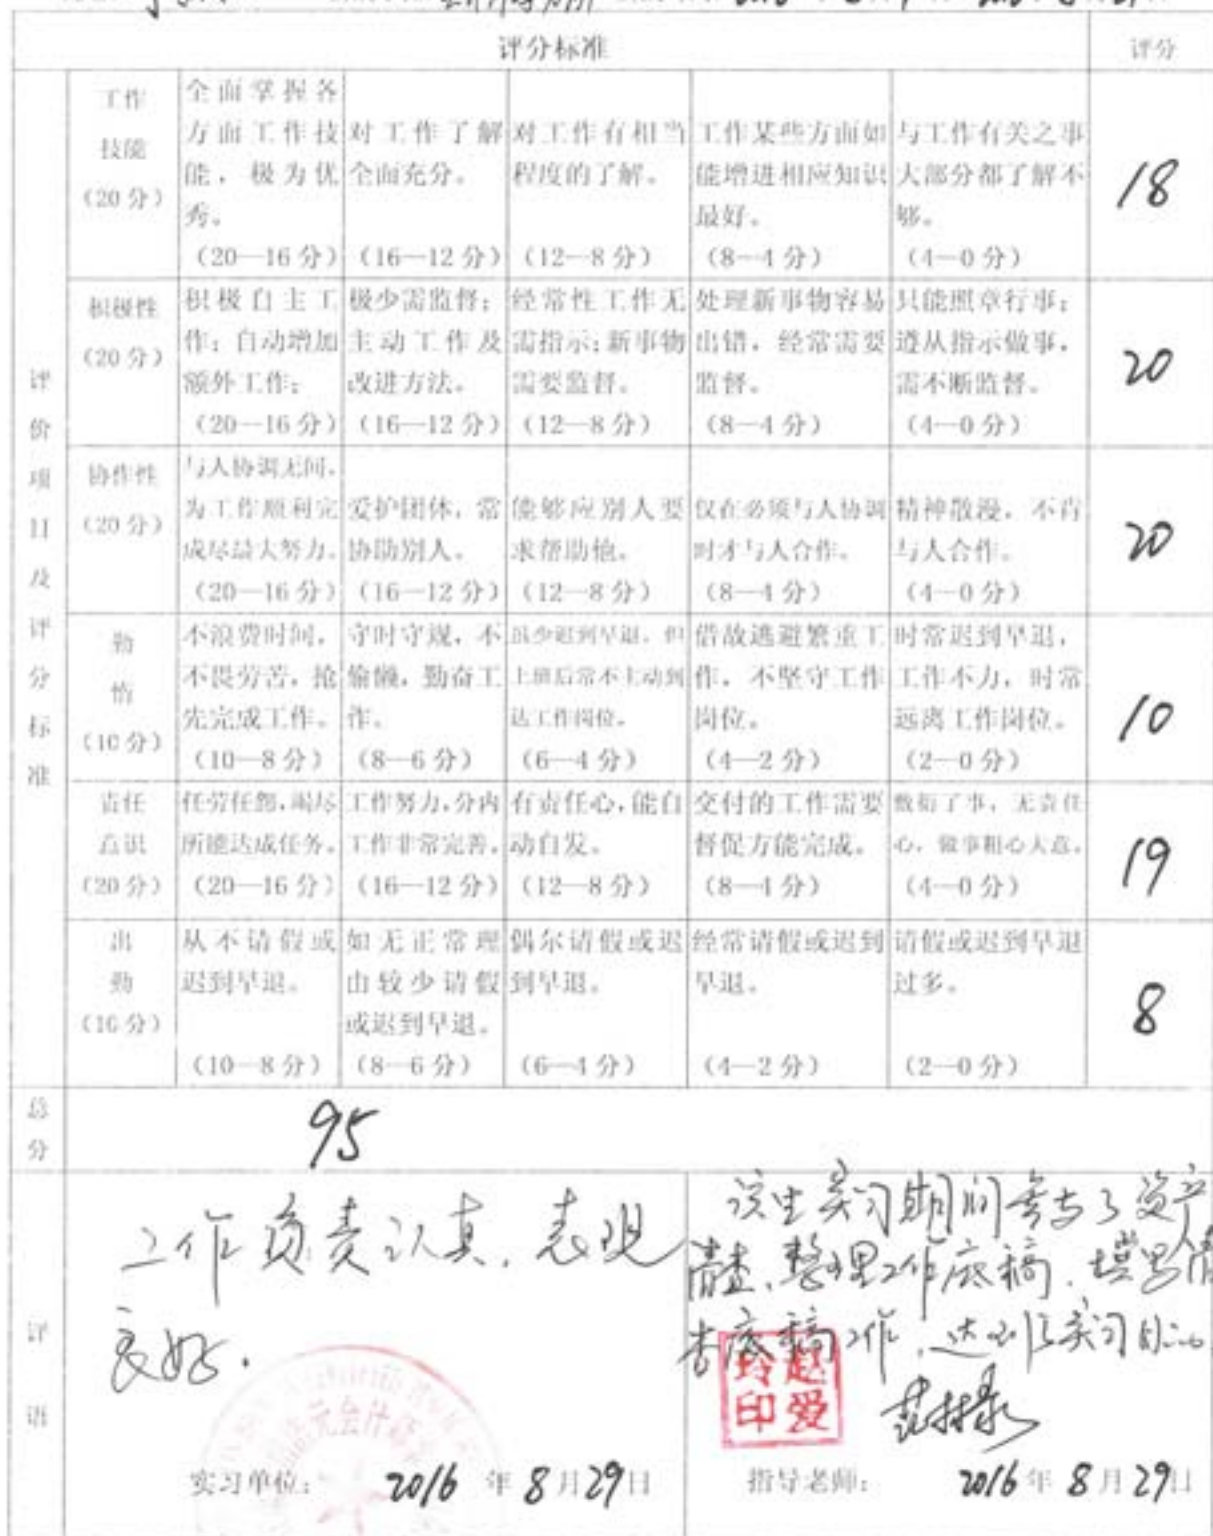 评分标准 评分
评价项目及评分标准
工作技能（20分）
全面掌握各方面工作技能，极为优秀。（20—16分）
对工作了解全面充分。（16—12分）
对工作有相当程度的了解。（12—8分）
工作某些方面如能增进相应知识最好。（8—4分）
与工作有关之事大部分都了解不够。（4—0分）
18
积极性（20分）
积极自主工作；自动增加额外工作；（20—16分）
极少需监督；主动工作及改进方法。（16—12分）
经常性工作无需指示；新事物需要监督。（12—8分）
处理新事物容易出错，经常需要监督。（8—4分）
只能照章行事；遵从指示做事，需不断监督。（4—0分）
20
协作性（20分）
与人协调无间，为工作顺利完成尽最大努力。（20—16分）
爱护团体，常协助别人。（16—12分）
能够应别人要求帮助他。（12—8分）
仅在必须与人协调时才与人合作。（8—4分）
精神散漫，不肯与人合作。（4—0分）
20
勤惰（10分）
不浪费时间，不畏劳苦，抢先完成工作。（10—8分）
守时守规，不偷懒，勤奋工作。（8—6分）
虽少迟到早退，但上班后常不主动到达工作岗位。（6—4分）
借故逃避繁重工作，不坚守工作岗位。（4—2分）
时常迟到早退，工作不力，时常远离工作岗位。（2—0分）
10
责任意识（20分）
任劳任怨，竭尽所能达成任务。（20—16分）
工作努力，分内工作非常完善。（16—12分）
有责任心，能自动自发。（12—8分）
交付的工作需要督促方能完成。（8—4分）
敷衍了事，无责任心，做事粗心大意。（4—0分）
19
出勤（10分）
从不请假或迟到早退。（10—8分）
如无正常理由较少请假或迟到早退。（8—6分）
偶尔请假或迟到早退。（6—4分）
经常请假或迟到早退。（4—2分）
请假或迟到早退过多。（2—0分）
8
总分 95
评语
工作负责认真，表现
良好.
实习单位： 2016 年 8 月 29 日
该生实习期间参与了资产
清查、整理工作底稿、填写清
查底稿工作，达到了实习目的
赵爱玲印
指导老师： 2016 年 8 月 29 日